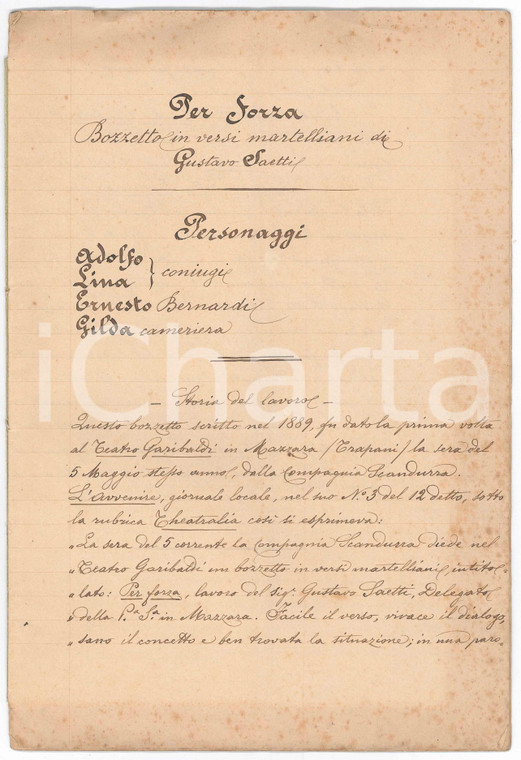 Per Forza
Bozzetto in versi martelliani di
Gustavo Saetti
Personaggi
Adolfo
Lina } coniugi
Ernesto Bernardi
Gilda cameriera
iCharta
— Storia del lavoro —
Questo bozzetto scritto nel 1889, fu dato la prima volta
al Teatro Garibaldi in Mazzara (Trapani) la sera del
5 Maggio stesso anno, dalla Compagnia Scandurra.
L'Avvenire, giornale locale, nel suo N° 3 del 12 detto, sotto
la rubrica Theatralia così si esprimeva:
"La sera del 5 corrente la Compagnia Scandurra diede nel
"Teatro Garibaldi un bozzetto in versi martelliani intito-
"lato: Per forza, lavoro del sig. Gustavo Saetti, Delegato
"della P.a S.a in Mazzara. Facile il verso, vivace il dialogo,
"sano il concetto e ben trovata la situazione; in una paro-